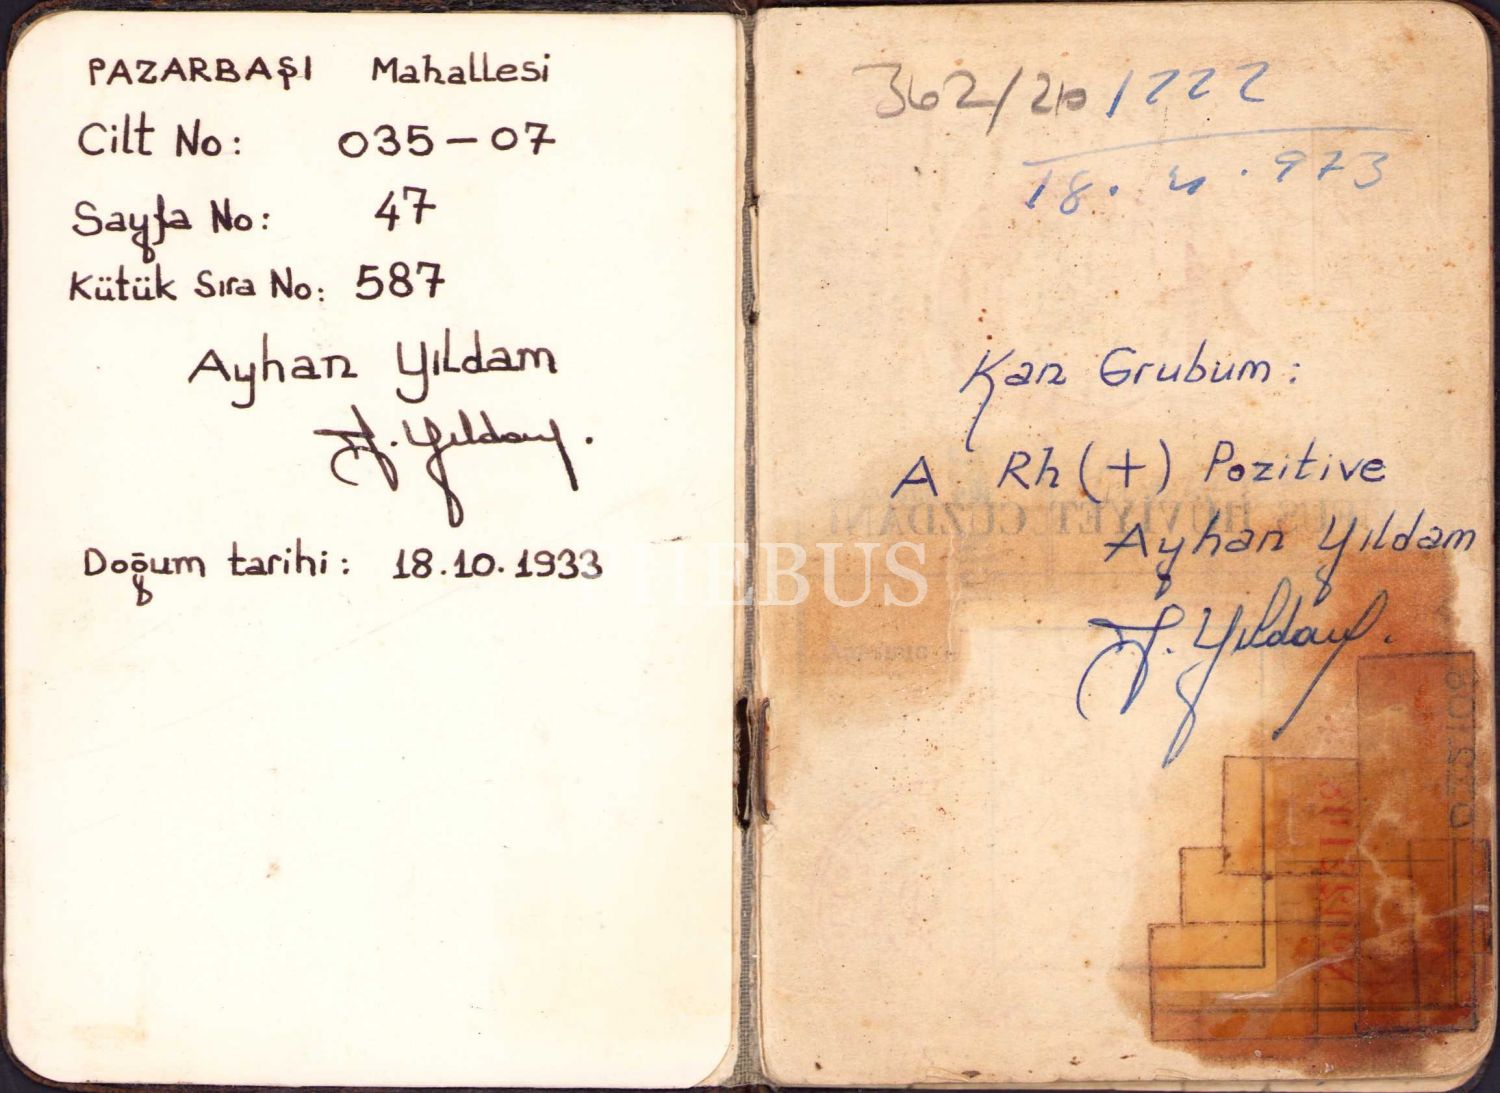 PAZARBAŞI Mahallesi
Cilt No: 035-07
Sayfa No: 47
Kütük Sıra No: 587
Ayhan Yıldam
A. Yıldam.
Doğum tarihi: 18.10.1933
PHEBUS
362/20/222
18. . 973
Kan Grubum:
A Rh (+) Pozitive
Ayhan Yıldam
A. Yıldam.
HÜVİYET CÜZDANI